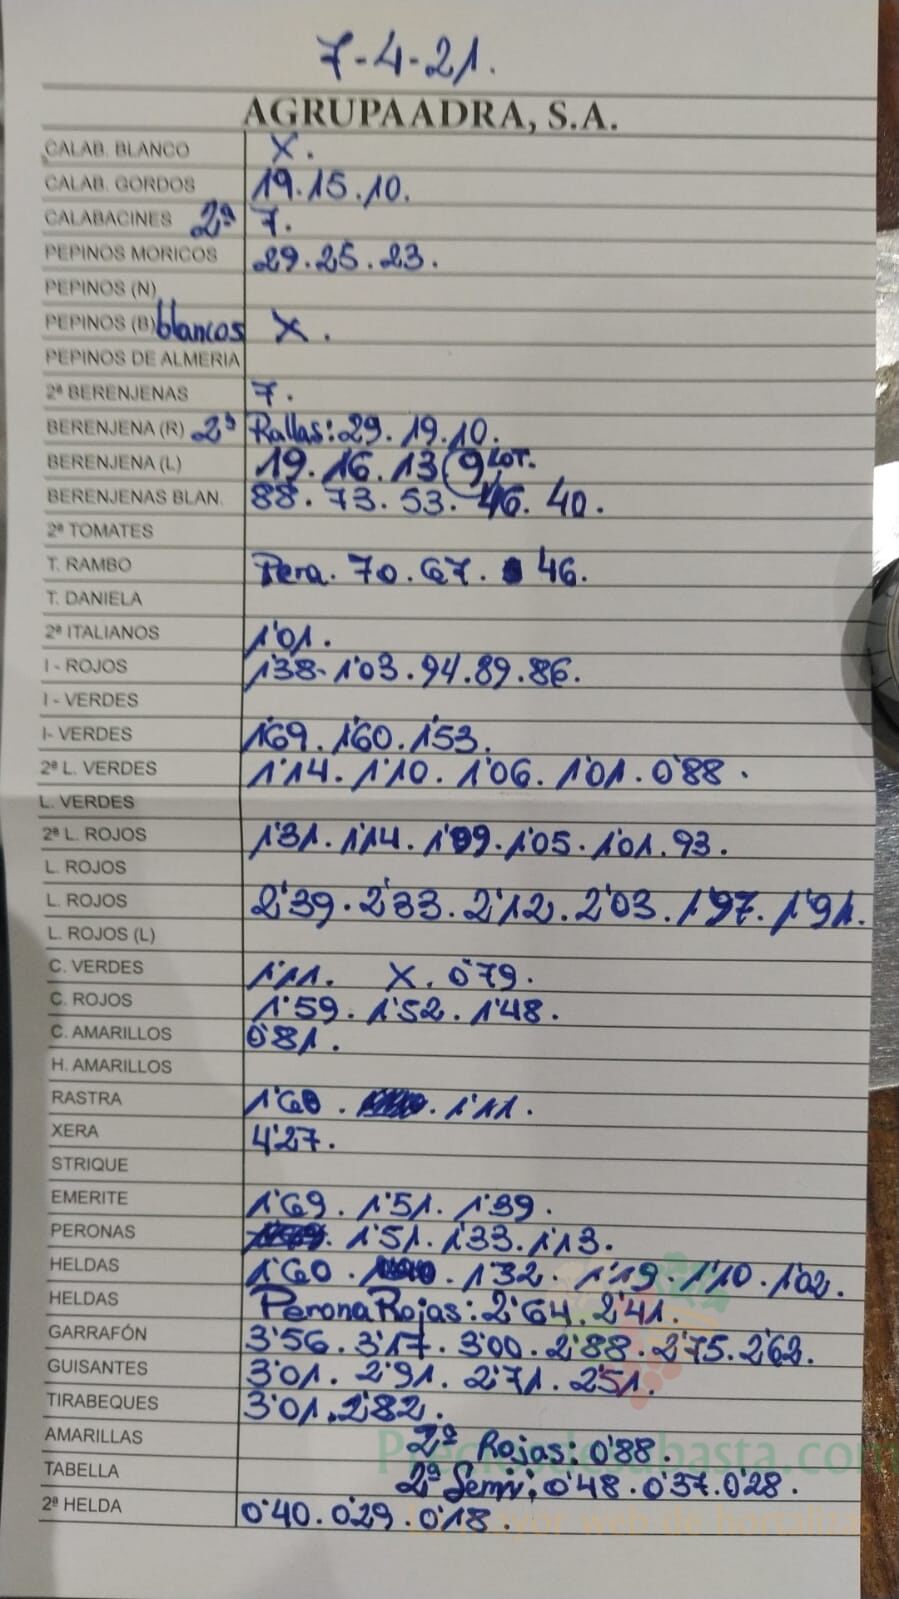 7-4-21.
AGRUPAADRA, S.A.
CALAB. BLANCO X.
CALAB. GORDOS 19.15.10.
CALABACINES 2ª 7.
PEPINOS MORICOS 29.25.23.
PEPINOS (N)
PEPINOS (B) blancos X.
PEPINOS DE ALMERIA
2ª BERENJENAS 7.
BERENJENA (R) 2ª Rallas: 29.19.10.
BERENJENA (L) 19.16.13 (9 LOT.
BERENJENAS BLAN. 88.73.53.46.40.
2ª TOMATES
T. RAMBO Pera. 70.67. 46.
T. DANIELA
2ª ITALIANOS 1'01.
I - ROJOS 1'38-1'03.94.89.86.
I - VERDES
I- VERDES 1'69.1'60.1'53.
2ª L. VERDES 1'14.1'10.1'06.1'01.0'88.
L. VERDES
2ª L. ROJOS 1'31.1'14. 1'05.1'01.93.
L. ROJOS
L. ROJOS 2'39.2'33.2'12.2'03.1'97.1'91.
L. ROJOS (L)
C. VERDES 1'11. X. 0'79.
C. ROJOS 1'59.1'52.1'48.
C. AMARILLOS 0'81.
H. AMARILLOS
RASTRA 1'60. 1'11.
XERA 4'27.
STRIQUE
EMERITE 1'69.1'51.1'39.
PERONAS 1'51.1'33.1'13.
HELDAS 1'60. 1'32.1'19.1'10.1'02.
HELDAS Perona Rojas: 2'64.2'41.
GARRAFÓN 3'56.3'17.3'00.2'88.2'75.2'62.
GUISANTES 3'01.2'91.2'71.2'51.
TIRABEQUES 3'01.2'82.
AMARILLAS 2ª Rojas: 0'88.
Preciosdesubasta.com
TABELLA 2ª Semi: 0'48.0'37.0'28.
2ª HELDA 0'40.0'29.0'18.
La mayor web de hortalizas